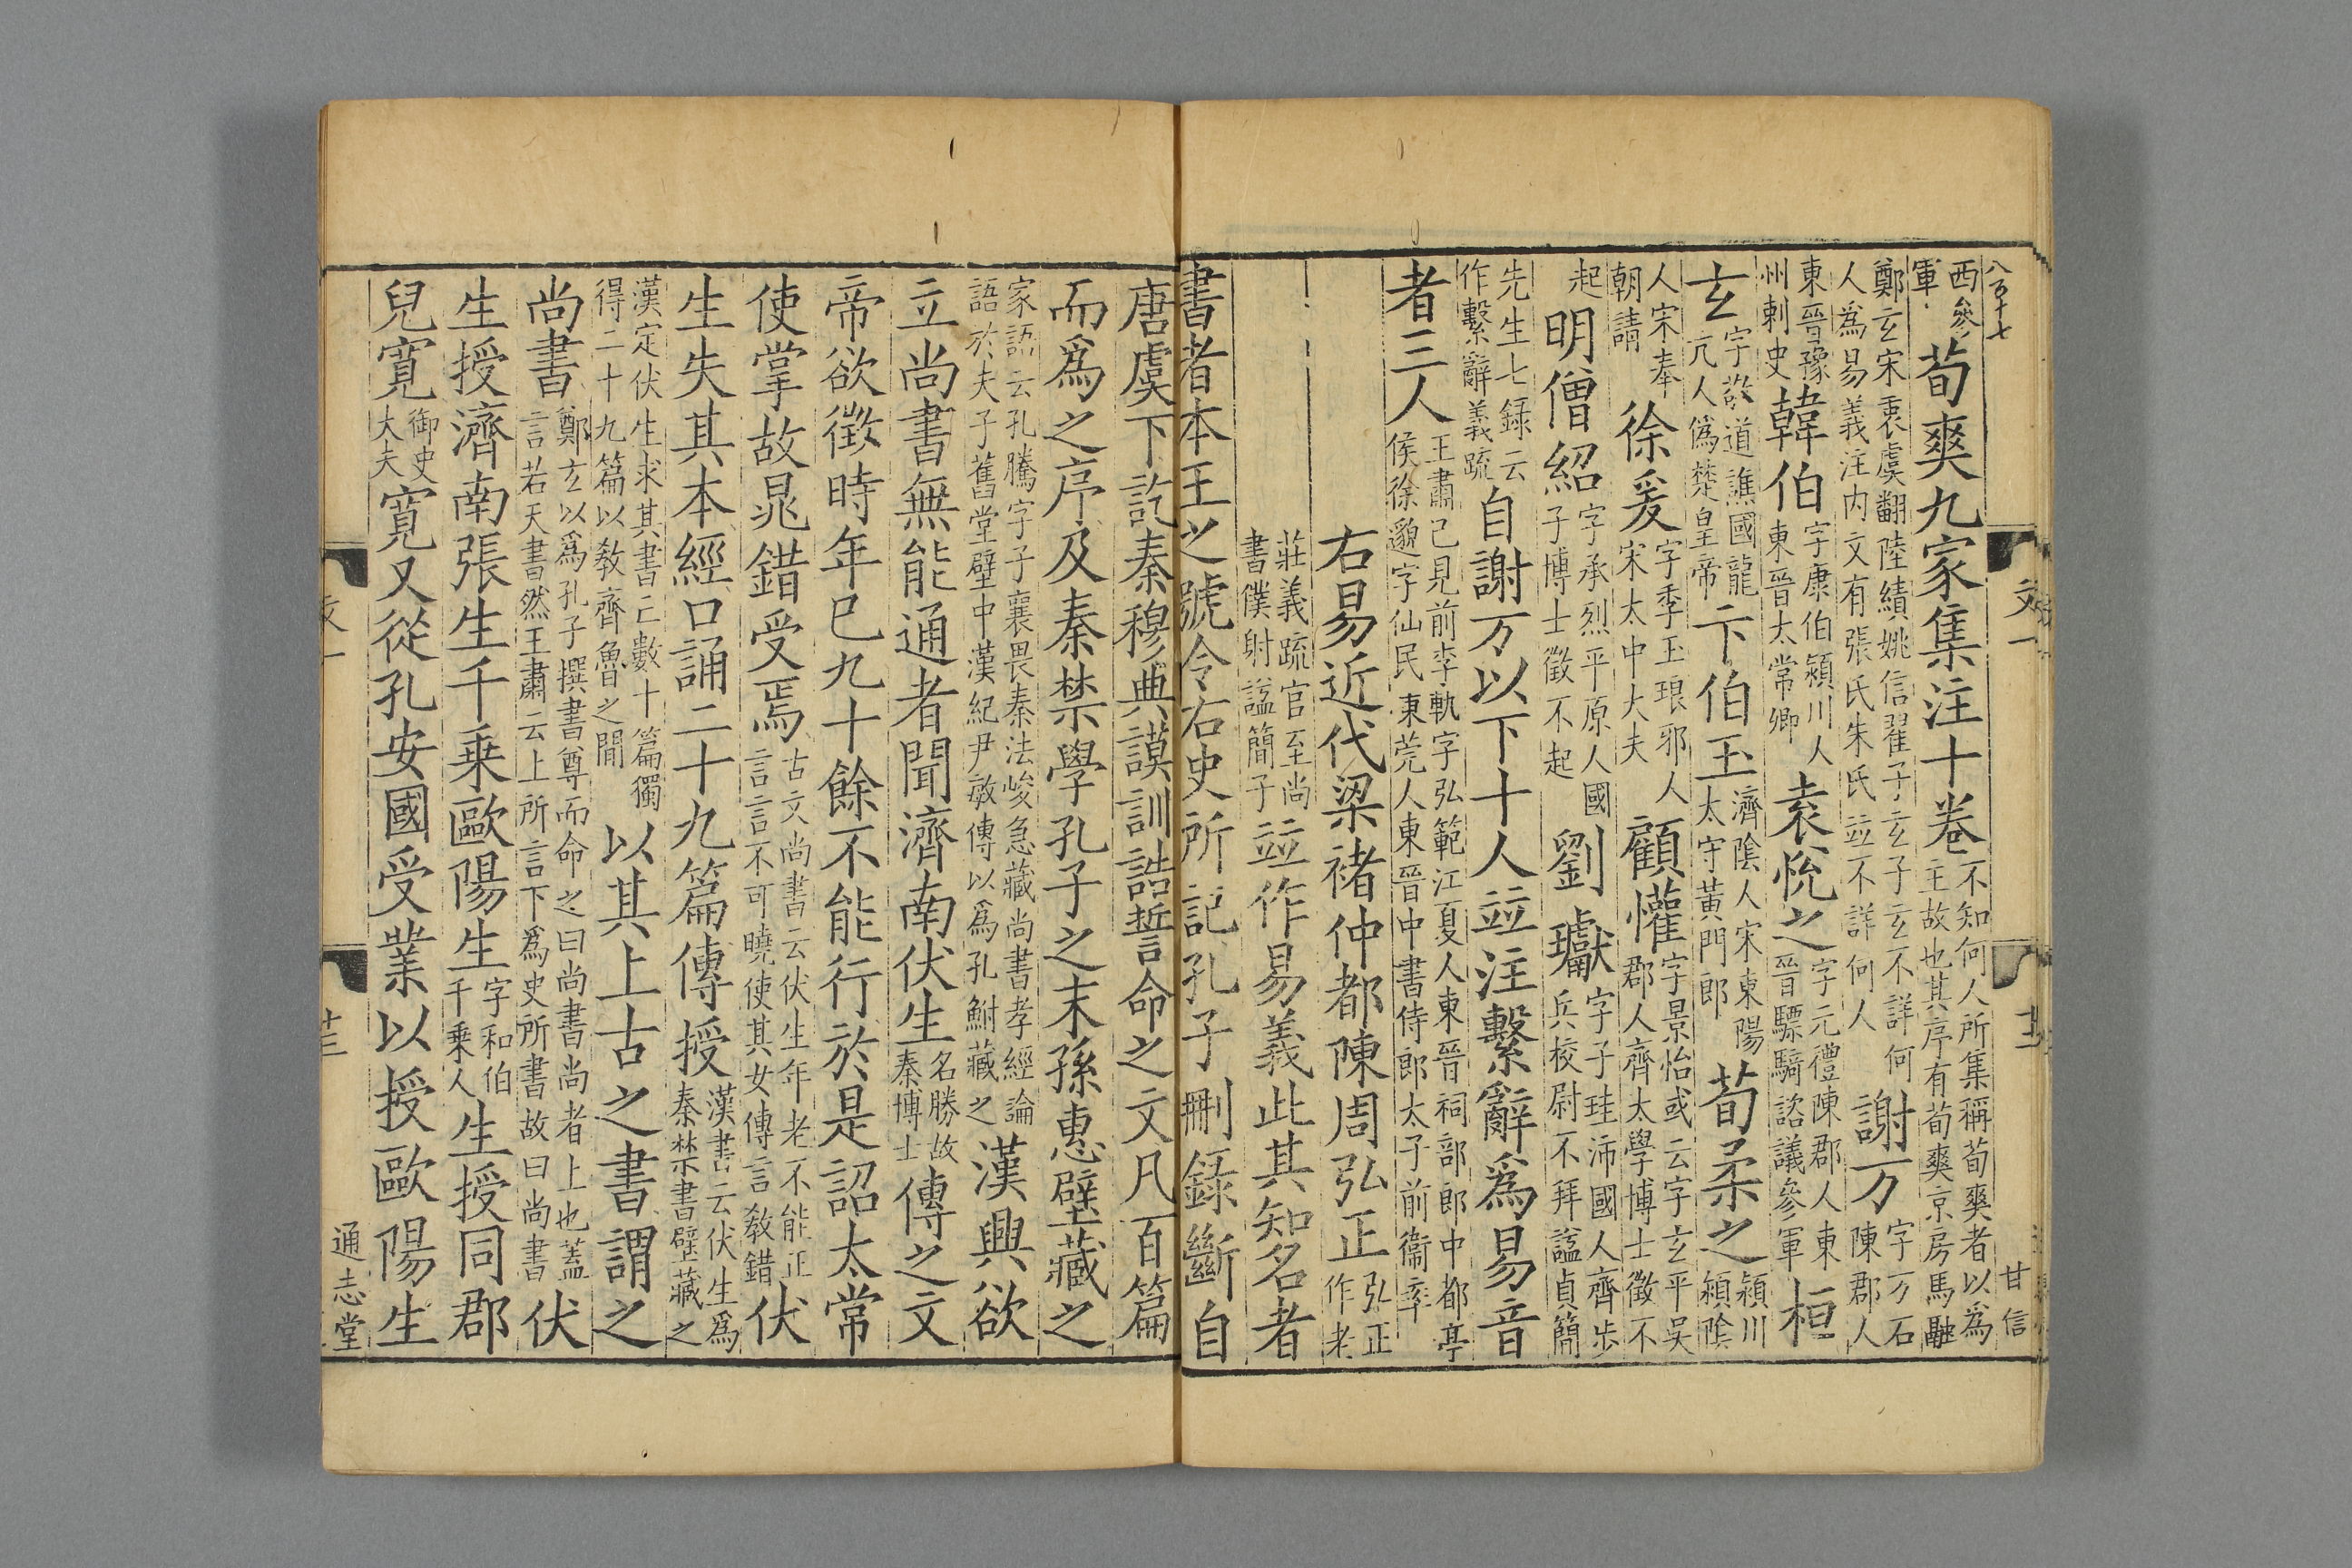 八百十七
西參軍荀爽九家集注十卷不知何人所集稱荀爽者以為主故也其序有荀爽京房馬融
鄭玄宋衷虞翻陸績姚信翟子玄子玄不詳何人為易義注内文有張氏朱氏竝不詳何人謝万字万石陳郡人
東晉豫州刺史韓伯字康伯潁川人東晉太常卿袁悅之字元禮陳郡人東晉驃騎諮議參軍桓
玄字敬道譙國龍亢人偽楚皇帝卞伯玉濟陰人宋東陽太守黃門郎荀柔之潁川潁陰
人宋奉朝請徐爰字季玉琅邪人宋太中大夫顧懽字景怡或云字玄平吳郡人齊太學博士徵不
起明僧紹字承烈平原人國子博士徵不起劉瓛字子珪沛國人齊步兵校尉不拜諡貞簡
先生七録云作繫辭義疏自謝万以下十人竝注繫辭為易音
者三人王肅已見前李軌字弘範江夏人東晉祠部郎中都亭侯徐邈字仙民東莞人東晉中書侍郎太子前衞率
右易近代梁褚仲都陳周弘正弘正作老
莊義疏官至尚書僕射諡簡子竝作易義此其知名者
書者本王之號令右史所記孔子刪録斷自
文一
十二
甘信
唐虞下訖秦穆典謨訓誥誓命之文凡百篇
而爲之序及秦禁學孔子之末孫惠壁藏之
家語云孔騰字子襄畏秦法峻急藏尚書孝經論語於夫子舊堂壁中漢紀尹敏傳以爲孔鮒藏之漢興欲
立尚書無能通者聞濟南伏生名勝故秦博士傳之文
帝欲徵時年已九十餘不能行於是詔太常
使掌故晁錯受焉古文尚書云伏生年老不能正言言不可曉使其女傳言教錯伏
生失其本經口誦二十九篇傳授漢書云伏生爲秦禁書壁藏之
漢定伏生求其書亡數十篇獨得二十九篇以教齊魯之閒以其上古之書謂之
尚書鄭玄以爲孔子撰書尊而命之曰尚書尚者上也蓋言若天書然王肅云上所言下爲史所書故曰尚書伏
生授濟南張生千乘歐陽生字和伯千乘人生授同郡
兒寛御史大夫寛又從孔安國受業以授歐陽生
文一
十三
通志堂